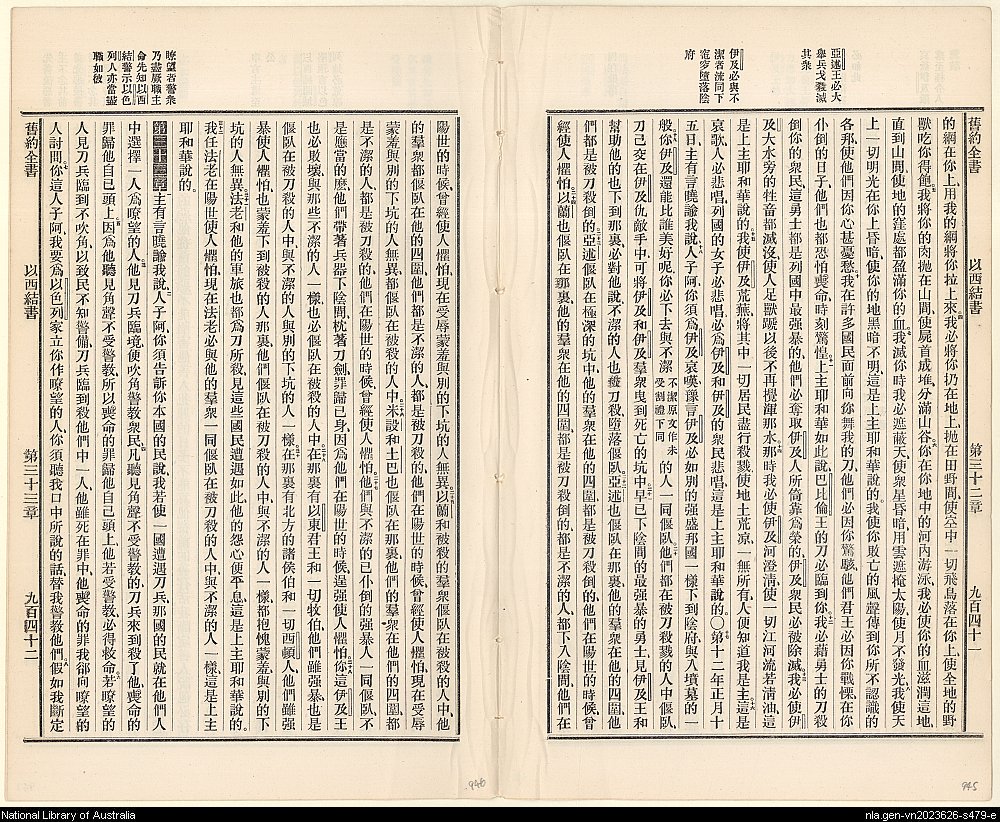 舊約全書
以西結書
第三十二章
九百四十一
亞述王必大
興兵戈殺滅
其衆
伊及必與不
潔者流同下
寃穸墮落陰
府
的網在你上用我的網將你拉上來我必將你扔在地上拋在田野間使空中一切飛鳥落在你上使全地的野
獸吃你得飽我將你的肉拋在山間使屍首成堆分滿山谷你在你地中的河內游泳我必使你的血滋潤這地
直到山間使地的窪處都盈滿你的血我滅你時我必遮蔽天使衆星昏暗用雲遮掩太陽使月不發光我使天
上一切明光在你上昏暗使你的地黑暗不明這是上主耶和華說的我使你敗亡的風聲傳到你所不認識的
各邦使他們因你心甚憂愁我在許多國民面前向你舞我的刀他們必因你驚駭他們君王必因你戰慄在你
仆倒的日子他們也都恐怕喪命時刻驚惶上主耶和華如此說巴比倫王的刀必臨到你我必藉勇士的刀殺
倒你的衆民這勇士都是列國中最强暴的他們必奪取伊及人所倚靠爲榮的伊及衆民必被除滅我必使伊
及大水旁的牲畜都滅沒使人足獸蹏以後不再攪渾那水那時我必使伊及河澄淸使一切江河流若淸油這
是上主耶和華說的我使伊及荒蕪將其中一切居民盡行殺戮使地土荒凉一無所有人便知道我是主這是
哀歌人必悲唱列國的女子必悲唱必爲伊及和伊及的衆民悲唱這是上主耶和華說的○第十二年正月十
五日主有言曉諭我說人子阿你須爲伊及哀嘆豫言伊及必如別的强盛邦國一樣下到陰府與入墳墓的一
般你伊及還能比誰美好呢你必下去與不潔不潔原文作未受割禮下同的人一同偃臥他們都在被刀殺戮的人中偃臥
刀己交在伊及仇敵手中可將伊及和伊及羣衆曳到死亡的坑中早已下陰間的最强暴的勇士見伊及王和
幫助他的也下到那裏必對他說不潔的人也被刀殺墮落偃臥亞述也偃臥在那裏他的羣衆在他的四圍他
們都是被刀殺倒的亞述偃臥在極深的坑中他的羣衆在他的四圍都是被刀殺倒的他們在陽世的時候曾
經使人懼怕以蘭也偃臥在那裏他的羣衆在他的四圍都是被刀殺倒的都是不潔的人都下入陰間他們在
陽世的時候曾經使人懼怕現在受辱蒙羞與別的下坑的人無異以蘭和被殺的羣衆偃臥在被殺的人中他
的羣衆都偃臥在他的四圍他們都是不潔的人都是被刀殺的他們在陽世的時候曾經使人懼怕現在受辱
蒙羞與別的下坑的人無異都偃臥在被殺的人中米設和土巴也偃臥在那裏他們的羣衆在他們的四圍都
是不潔的人都是被刀殺的他們在陽世的時候曾經使人懼怕他們與不潔的已仆倒的强暴人一同偃臥不
是應當的麽他們帶著兵器下陰間枕著刀劍罪歸已身因爲他們在陽世的時候逞强使人懼怕你這伊及王
也必敗壞與那些不潔的人一樣也必偃臥在被殺的人中在那裏有以東君王和一切牧伯他們雖强暴也是
偃臥在被刀殺的人中與不潔的人與別的下坑的人一樣在那裏有北方的諸侯伯和一切西頓人他們雖强
暴使人懼怕也蒙羞下到被殺的人那裏他們偃臥在被刀殺的人中與不潔的人一樣都抱愧蒙羞與別的下
坑的人無異法老和他的軍旅也都爲刀所殺見這些國民遭遇如此他的怨心便平息這是上主耶和華說的
我任法老在陽世使人懼怕現在法老必與他的羣衆一同偃臥在被刀殺的人中與不潔的人一樣這是上主
耶和華說的
第三十三章主有言曉諭我說人子阿你須告訴你本國的民說我若使一國遭遇刀兵那國的民就在他們人
中選擇一人爲暸望的人他見刀兵臨境便吹角警教衆民凡聽見角聲不受警教的刀兵來到殺了他喪命的
罪歸他自己頭上因爲他聽見角聲不受警教所以喪命的罪歸他自己頭上他若受警教必得救命暸望的
人見刀兵臨到不吹角以致民不知警備刀兵臨到殺他們中一人他雖死在罪中他喪命的罪我卻向暸望的
人討問你這人子阿我要爲以色列家立你作暸望的人你須聽我口中所說的話替我警教他們假如我斷定
暸望者警衆
乃盡厥職主
命先知以西
結警示以色
列人亦當盡
職如彼
舊約全書
以西結書
第三十三章
九百四十二
946
945
National Library of Australia
nla.gen-vn2023626-s479-e